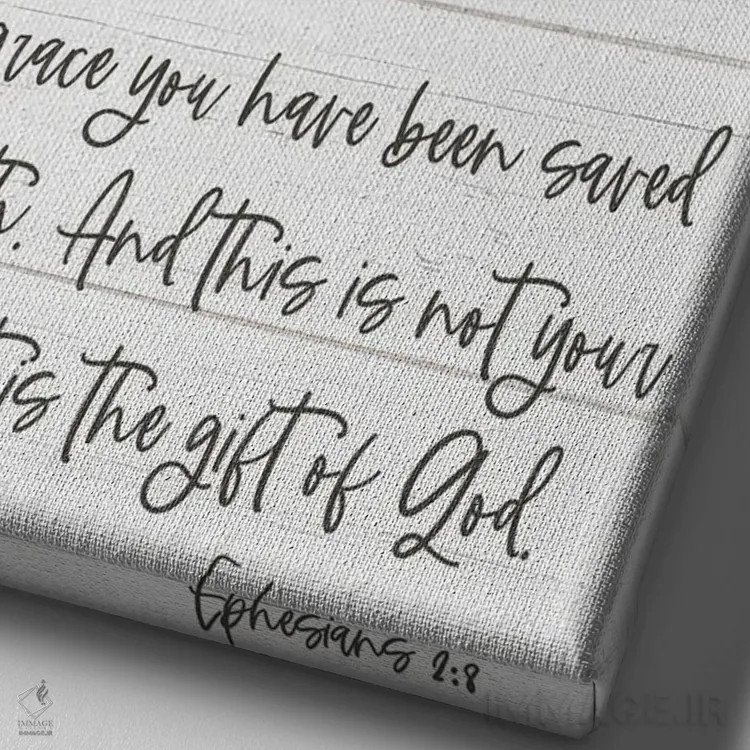 grace you have been saved
th. And this is not your
is the gift of God.
Ephesians 2:8
IMMAGE
IMMAGE.IR
IMMAGE.IR